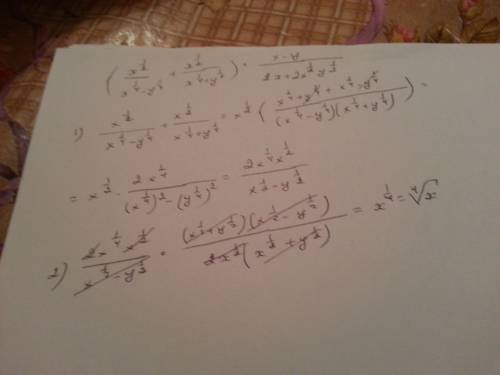 (x^{1/2}/(x^{1/4}-y^{1/4}) + x^{1/2}/(x^{1/4}+y^{1/4})) · (x-y)/(2x+2x^{1/2}y^{1/2})
1) x^{1/2}/(x^{1/4}-y^{1/4}) + x^{1/2}/(x^{1/4}+y^{1/4}) = x^{1/2} ((x^{1/4}+y^{1/4}+x^{1/4}-y^{1/4})/((x^{1/4}-y^{1/4})(x^{1/4}+y^{1/4}))) =
= x^{1/2} · 2x^{1/4}/((x^{1/4})^2-(y^{1/4})^2) = 2x^{1/4}x^{1/2}/(x^{1/2}-y^{1/2})
2) 2x^{1/4}x^{1/2}/(x^{1/2}-y^{1/2}) · (x^{1/2}+y^{1/2})(x^{1/2}-y^{1/2})/(2x^{1/2}(x^{1/2}+y^{1/2})) = x^{1/4} = ⁴√x